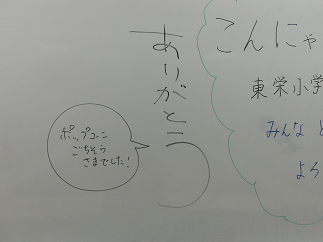 こんにゃ
東栄小学
みんなと
よろ
ありがとう
ポップコーン
ごちそう
さまでした!